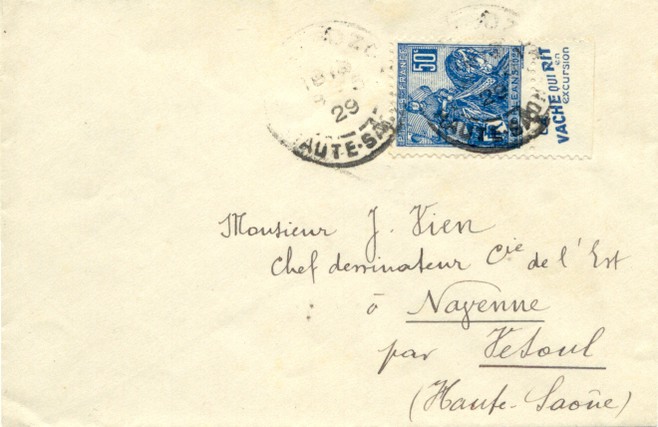 29
AUTE-SA
50c
FRANCE
29
AUTE-SAÔN
VACHE QUI RIT
en
excursion
Monsieur J. Vien
Chef dessinateur Cie de l'Est
à Navenne
par Vesoul
(Haute-Saône)